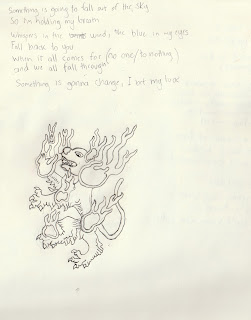 Something is going to fall out of the sky
So I'm holding my breath
Whispers in the wind, the blue in my eyes
Fall back to you
When it all comes for (no one/to nothing)
and we all fall through
Something is gonna change, I bet my